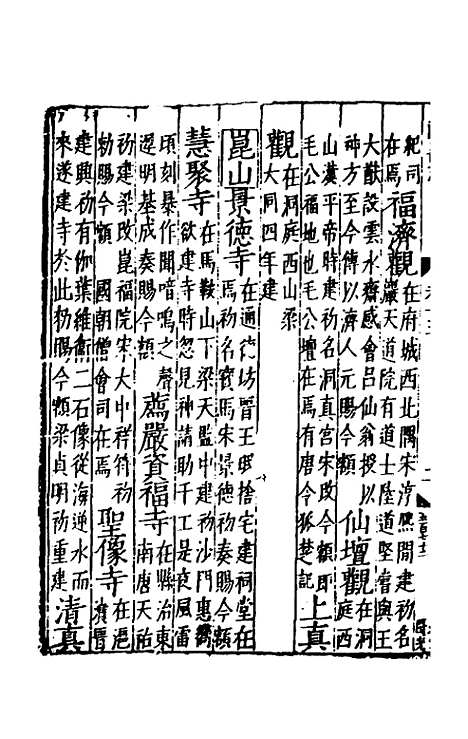 紀司
在焉
福濟觀
在府城西北隅宋淳熙間建初名
巖天道院有道士陸道堅嘗與王
大猷設雲水齋感會呂仙翁授以
神方至今傳以濟人元賜今額
仙壇觀
在洞
庭西
山漢平帝時建初名洞真宮宋改今額即
毛公福地也毛公壇在焉有唐令狐楚記
上真
觀
在洞庭西山梁
大同四年建
崑山景德寺
在通德坊晉王珉捨宅建祠堂在
焉初名寳馬宋景德初奏賜今額
慧聚寺
在馬鞍山下梁天監中建初沙門惠嚮
欲建寺時忽見神請助千工是夜風雷
頃刻暴作聞喑嗚之聲
遲明基成奏賜今額
薦嚴資福寺
在縣治東
南唐天祐
初建梁改崑福院宋大中祥符初
勑賜今額 國朝僧會司在焉
聖像寺
在滬
瀆晉
建興初有伽葉維衛二石像從海逆水而
來遂建寺於此勑賜今額梁貞明初重建
清真